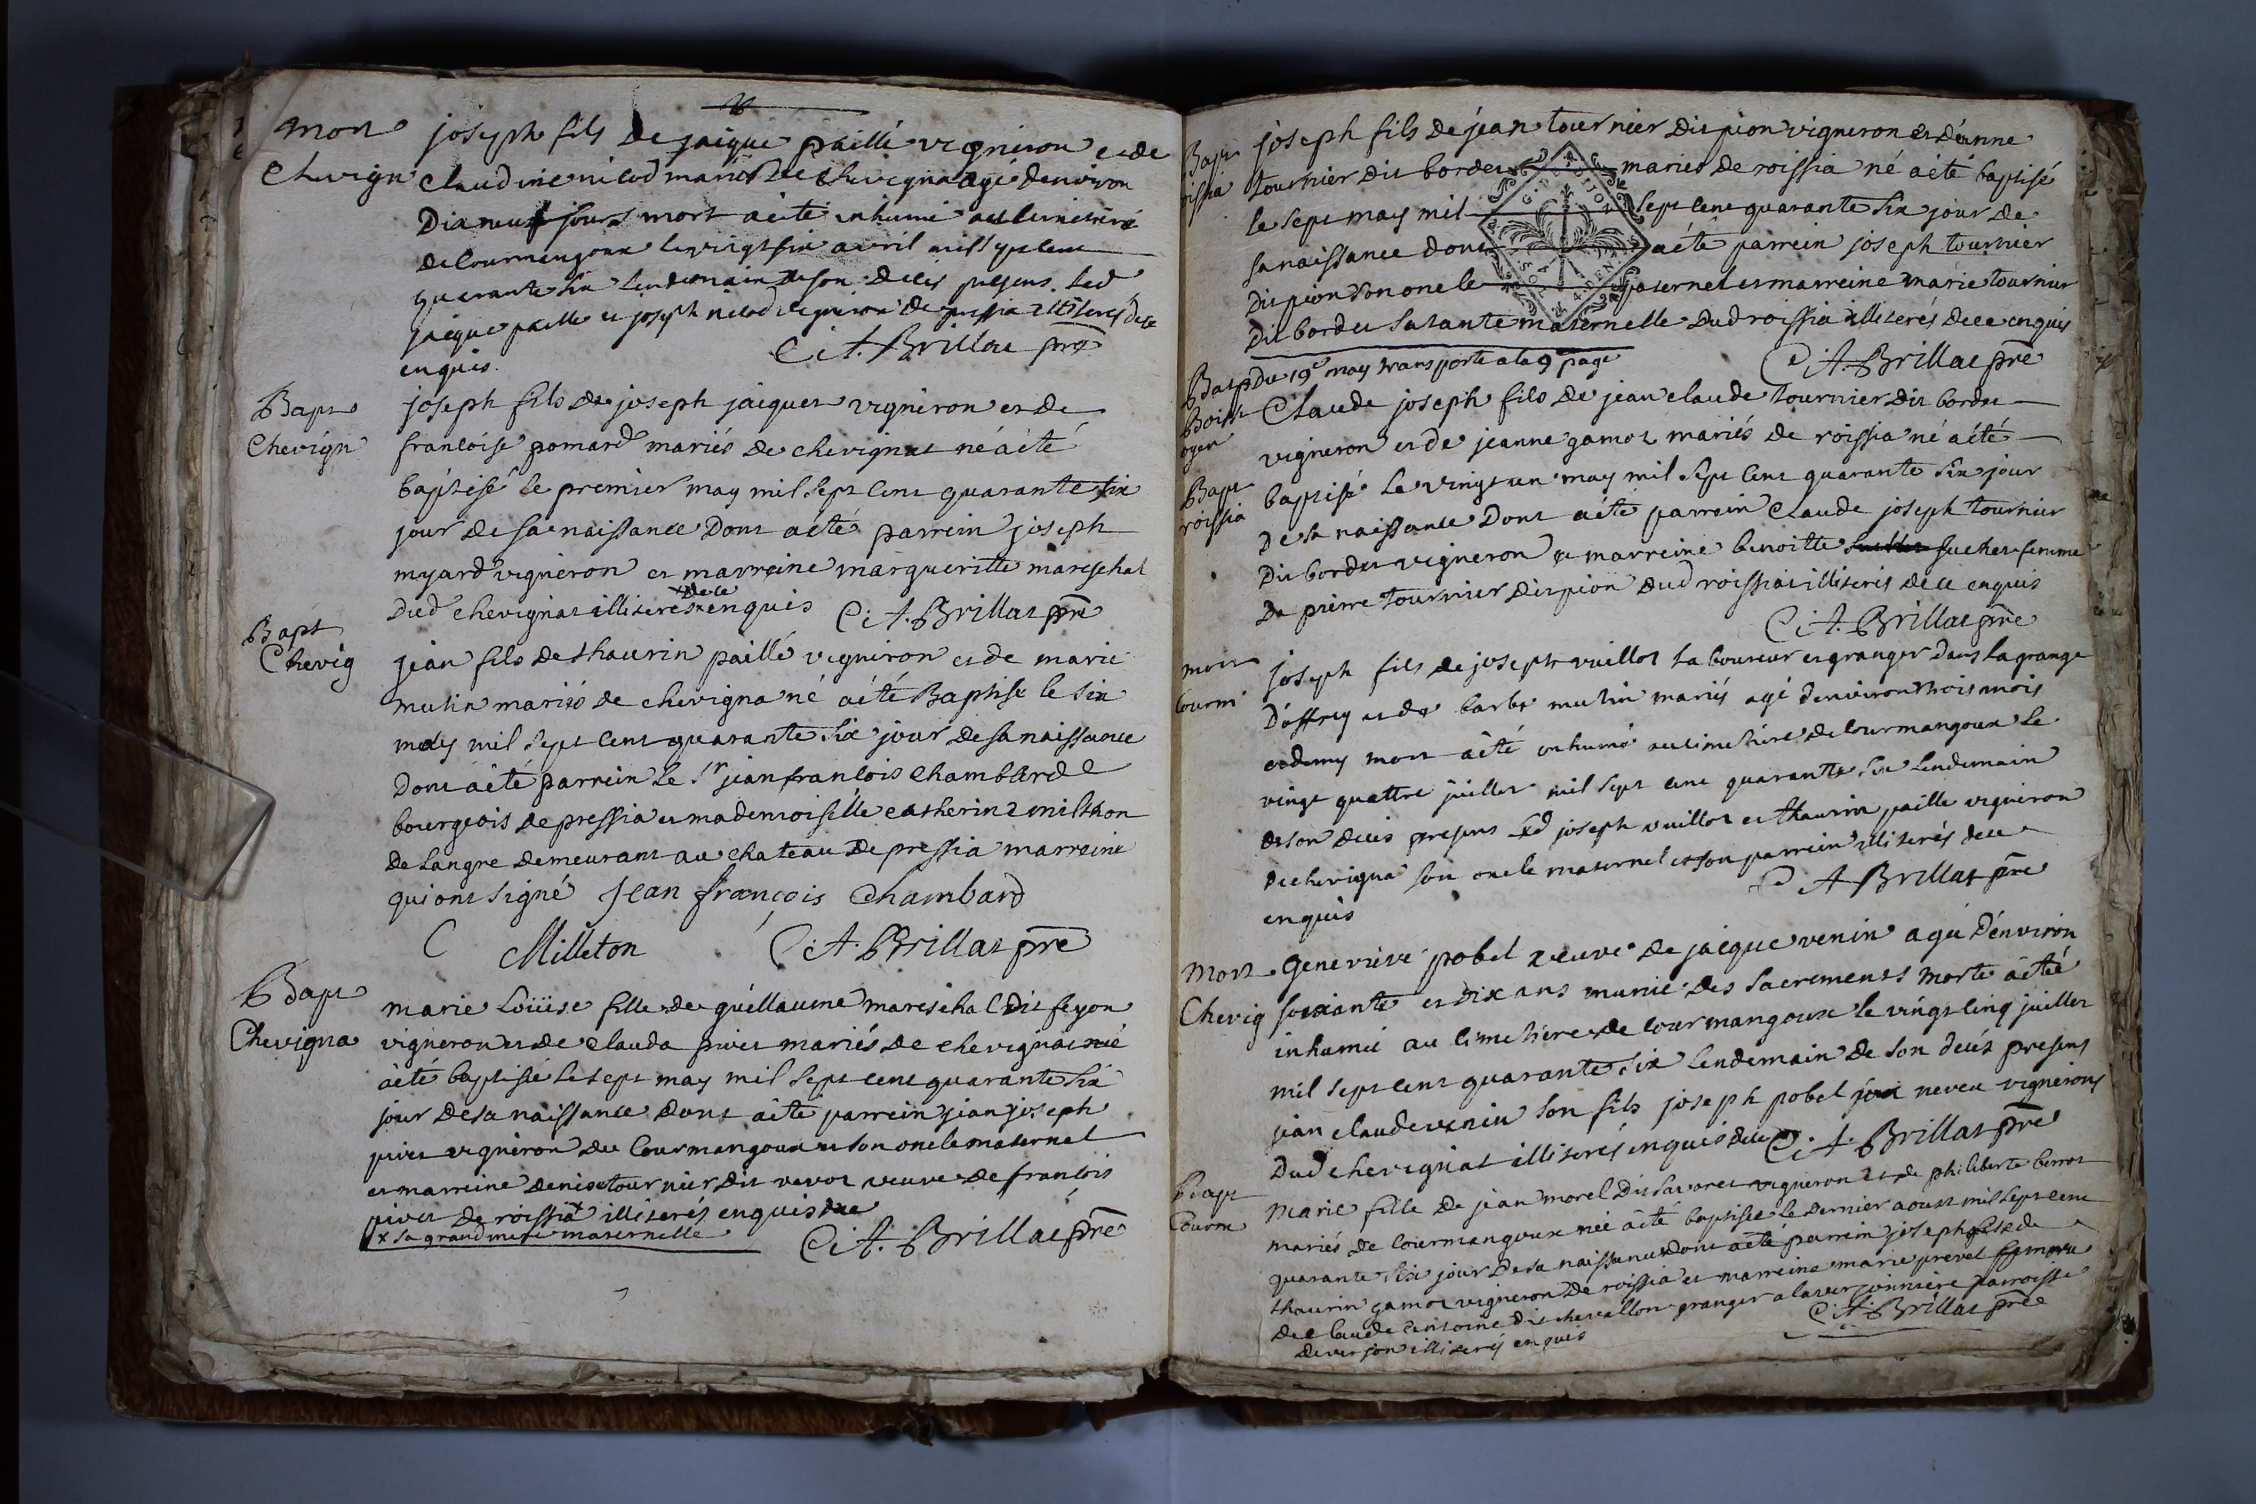 mort
Chevign
joseph fils de jaique paillé vigneron et de
Claudine nicod mariés de chevigna agé denviron
Dix neuf jours mort a été inhumé au Cimetiere
de Courmengoux le vingt six avril mil sept cent
quarante six lendemain de son deces presens led
jaique paille et joseph nicod vigneron de pressia illiterés de ce
enquis
C. A. Brillat pre
Bapt
Chevign
joseph fils de joseph jaiques vigneron et de
francoise pomard mariés de chevignat né a été
baptisé le premier may mil sept cent quarante six
jour de sa naissance Dont a été parrein joseph
myard vigneron et marreine margueritte mareschal
Dud chevignat illiterés de ce enquis C. A. Brillat pre
Bapt
Chevig
jean fils de thaurin paillé vigneron et de marie
mutin mariés de chevigna né a été Baptisé le six
may mil sept cent quarante six jour de sa naissance
Dont a été parrein le Sr jean francois Chambard
bourgeois de pressia et mademoiselle catherine milthon
De Langre demeurant au chateau de pressia marreine
qui ont signé Jean françois Chambard
Milleton C. A. Brillat pre
Bapt
Chevigna
marie Loüise fille de guéllaume mareschal Dit feyon
vigneron et de clauda pivet mariés de chevignat née
a été baptisée le sept may mil sept cent quarante six
jour de sa naissance dont a été parrein jean joseph
pivet vigneron de Courmangoux et son oncle maternel
et marreine denise tournier dit vevot veuve de francois
pivet de roissiat illiterés enquis de ce
x sa grand mere maternelle
C. A. Brillat pre
Bapt
issia
joseph fils de jean tournier Dit pion vigneron et d'anne
tournier dit bordet mariés de roissia né a été baptisé
le sept may mil sept cent quarante six jour de
sa naissance dont a été parrein joseph tournier
Dit pion son oncle paternel et marreine marie tournier
Dit bordet sa tante maternelle dud roissia illiterés de ce enquis
C. A. Brillat pre
Bapt du 19e may transporte a la 9 page
Boiss
oyer
Bapt
roissia
Claude joseph fils de jean claude tournier dit bordet
vigneron et de jeanne gamot mariés de roissia né a été
baptisé le vingt un may mil sept cent quarante six jour
De sa naissance Dont a été parrein Claude joseph tournier
Dit bordet vigneron et marreine benoitte suchet femme
De pierre tournier dit pion dud roissia illiterés de ce enquis
C. A. Brillat pre
mort
Courm
joseph fils de joseph vuillot laboureur et granger dans la grange
D'offrey et de barbe mutin mariés agé denviron trois mois
et demy mort a été inhumé au cimetiere de Courmangoux le
vingt quattre juillet mil sept cent quarante six lendemain
de son deces presens led joseph vuillot et thaurin paille vigneron
de chevigna son oncle maternel et son parrein illiterés de ce
enquis
C. A. Brillat pre
Mort
Chevig
Genevieve pobel veuve de jaicque venin agée d'environ
soixante et dix ans munie des sacrements morte a été
inhumée au cimetiere de courmangoux le vingt cinq juillet
mil sept cent quarante six lendemain de son decés presens
jean claude venin son fils joseph pobel neveu vignerons
Dud chevignat illiterés enquis de ce C. A. Brillat pre
Bapt
Courm
Marie fille de jean morel Dit savaret vigneron et de philiberte berrot
mariés de Courmangoux née a été baptisée le dernier aoust mil sept cent
quarante six jour de sa naissance dont a été parrein joseph fils de
thaurin gamot vigneron de roissia et marreine marie prevel femme
de claude antoine dit chevallon granger a la verjonniere parroisse
de verjon illiterés enquis
C. A. Brillat pre